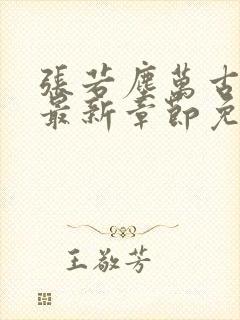 張若塵萬古
最新章節免
王敬芳